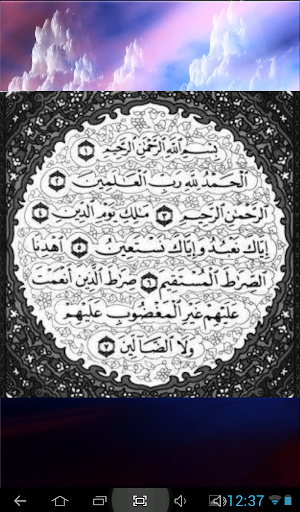 بِسْمِ ٱللَّهِ ٱلرَّحْمَٰنِ ٱلرَّحِيمِ ١
ٱلْحَمْدُ لِلَّهِ رَبِّ ٱلْعَٰلَمِينَ ٢
ٱلرَّحْمَٰنِ ٱلرَّحِيمِ ٣ مَٰلِكِ يَوْمِ ٱلدِّينِ ٤
إِيَّاكَ نَعْبُدُ وَإِيَّاكَ نَسْتَعِينُ ٥ ٱهْدِنَا
ٱلصِّرَٰطَ ٱلْمُسْتَقِيمَ ٦ صِرَٰطَ ٱلَّذِينَ أَنْعَمْتَ
عَلَيْهِمْ غَيْرِ ٱلْمَغْضُوبِ عَلَيْهِمْ
وَلَا ٱلضَّآلِّينَ ٧
12:37